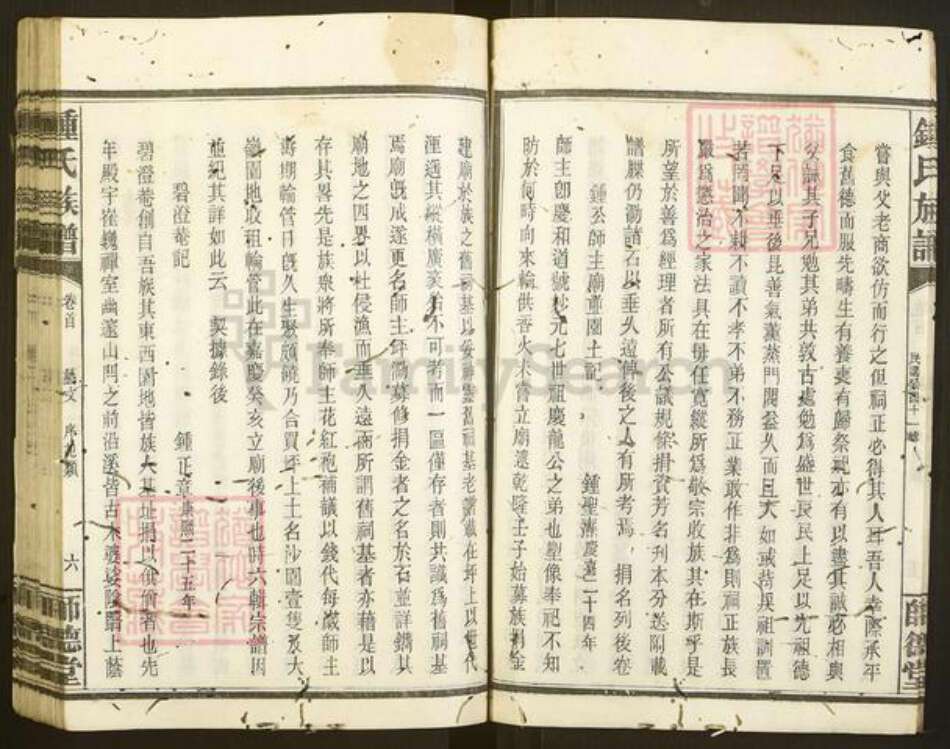 鍾氏族譜
師德堂
嘗與父老商欲仿而行之但祠正必得其人耳吾人幸際承平
食舊德而服先疇生有養喪有歸祭祀亦有以盡其誠必相與
父詔其子兄勉其弟共敦古處勉為盛世良民上足以光祖德
下足以垂後昆善氣薰蒸門閥益久而且大如或苟戾祖訓置
若罔聞不耕不讀不孝不弟不務正業敢作非為則祠正族長
嚴為懲治之家法具在毋任寬縱所為敬宗收族其在斯乎是
所望於善為經理者所有公議規條捐資芳名刊本分送附載
譜牒仍勒諸石以垂久遠俾後之人有所考焉，捐名列後卷
鍾聖濟慶遠二十四年
鍾公師主廟並園土記
師主卽慶和道號妙元七世祖慶龍公之弟也塑像奉祀不知
昉於何時向來輪供香火未嘗立廟迨乾隆壬子始募族捐金
建廟於族之舊祠基以妥神靈舊祠基老譜載在坪上以世代
湮遠其縱橫廣袤若不可考而一區僅存者則共議為舊祠基
焉廟旣成遂更名師主坪鳩募修捐金者之名於石並詳鐫其
廟地之四界以杜侵漁而垂久遠而所謂舊祠基者亦藉是以
存其畧先是族衆將所奉師主花紅砲補議以錢代每歲師主
壽期輪管日旣久生聚頗饒乃合買坪上土名沙園壹隻及大
嶺園地收租輪管此在嘉慶癸亥立廟後事也時六輯宗譜因
並紀其詳如此云　契據錄後
鍾正章康熙二十五年
碧澄菴記
碧澄菴創自吾族其東西園地皆族人基址捐以供僧者也先
年殿宇崔巍禪室幽邃山門之前沿溪皆古木婆娑陰翳上蔭
鍾氏族譜
卷首
藝文
序記類
六
師德堂
FamilySearch